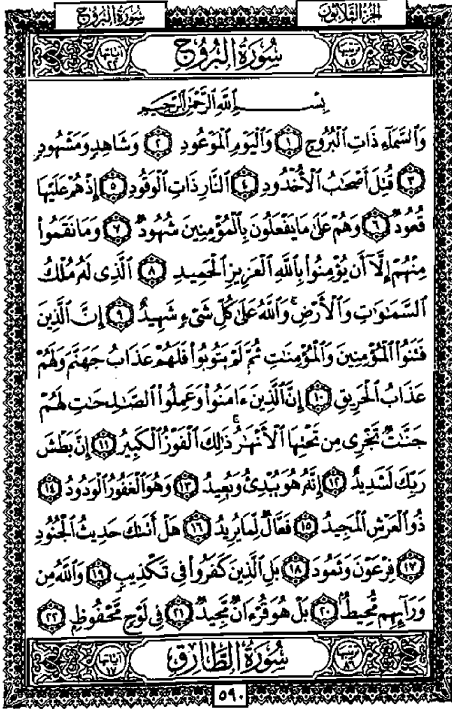 سُورَةُ البُرُوجِ
الجُزْءُ الثَّلَاثُونَ
آياتها ٢٢
سُورَةُ البُرُوجِ
ترتيبها ٨٥
بِسْمِ اللَّهِ الرَّحْمَٰنِ الرَّحِيمِ
وَالسَّمَاءِ ذَاتِ الْبُرُوجِ ۝١ وَالْيَوْمِ الْمَوْعُودِ ۝٢ وَشَاهِدٍ وَمَشْهُودٍ
۝٣ قُتِلَ أَصْحَٰبُ الْأُخْدُودِ ۝٤ النَّارِ ذَاتِ الْوَقُودِ ۝٥ إِذْ هُمْ عَلَيْهَا
قُعُودٌ ۝٦ وَهُمْ عَلَىٰ مَا يَفْعَلُونَ بِالْمُؤْمِنِينَ شُهُودٌ ۝٧ وَمَا نَقَمُوا
مِنْهُمْ إِلَّا أَن يُؤْمِنُوا بِاللَّهِ الْعَزِيزِ الْحَمِيدِ ۝٨ الَّذِي لَهُ مُلْكُ
السَّمَٰوَٰتِ وَالْأَرْضِ ۚ وَاللَّهُ عَلَىٰ كُلِّ شَيْءٍ شَهِيدٌ ۝٩ إِنَّ الَّذِينَ
فَتَنُوا الْمُؤْمِنِينَ وَالْمُؤْمِنَٰتِ ثُمَّ لَمْ يَتُوبُوا فَلَهُمْ عَذَابُ جَهَنَّمَ وَلَهُمْ
عَذَابُ الْحَرِيقِ ۝١٠ إِنَّ الَّذِينَ ءَامَنُوا وَعَمِلُوا الصَّٰلِحَٰتِ لَهُمْ
جَنَّٰتٌ تَجْرِي مِن تَحْتِهَا الْأَنْهَٰرُ ۚ ذَٰلِكَ الْفَوْزُ الْكَبِيرُ ۝١١ إِنَّ بَطْشَ
رَبِّكَ لَشَدِيدٌ ۝١٢ إِنَّهُ هُوَ يُبْدِئُ وَيُعِيدُ ۝١٣ وَهُوَ الْغَفُورُ الْوَدُودُ ۝١٤
ذُو الْعَرْشِ الْمَجِيدُ ۝١٥ فَعَّالٌ لِّمَا يُرِيدُ ۝١٦ هَلْ أَتَىٰكَ حَدِيثُ الْجُنُودِ
۝١٧ فِرْعَوْنَ وَثَمُودَ ۝١٨ بَلِ الَّذِينَ كَفَرُوا فِي تَكْذِيبٍ ۝١٩ وَاللَّهُ مِن
وَرَائِهِم مُّحِيطٌ ۝٢٠ بَلْ هُوَ قُرْءَانٌ مَّجِيدٌ ۝٢١ فِي لَوْحٍ مَّحْفُوظٍ ۝٢٢
آياتها ١٧
سُورَةُ الطَّارِقِ
ترتيبها ٨٦
٥٩٠